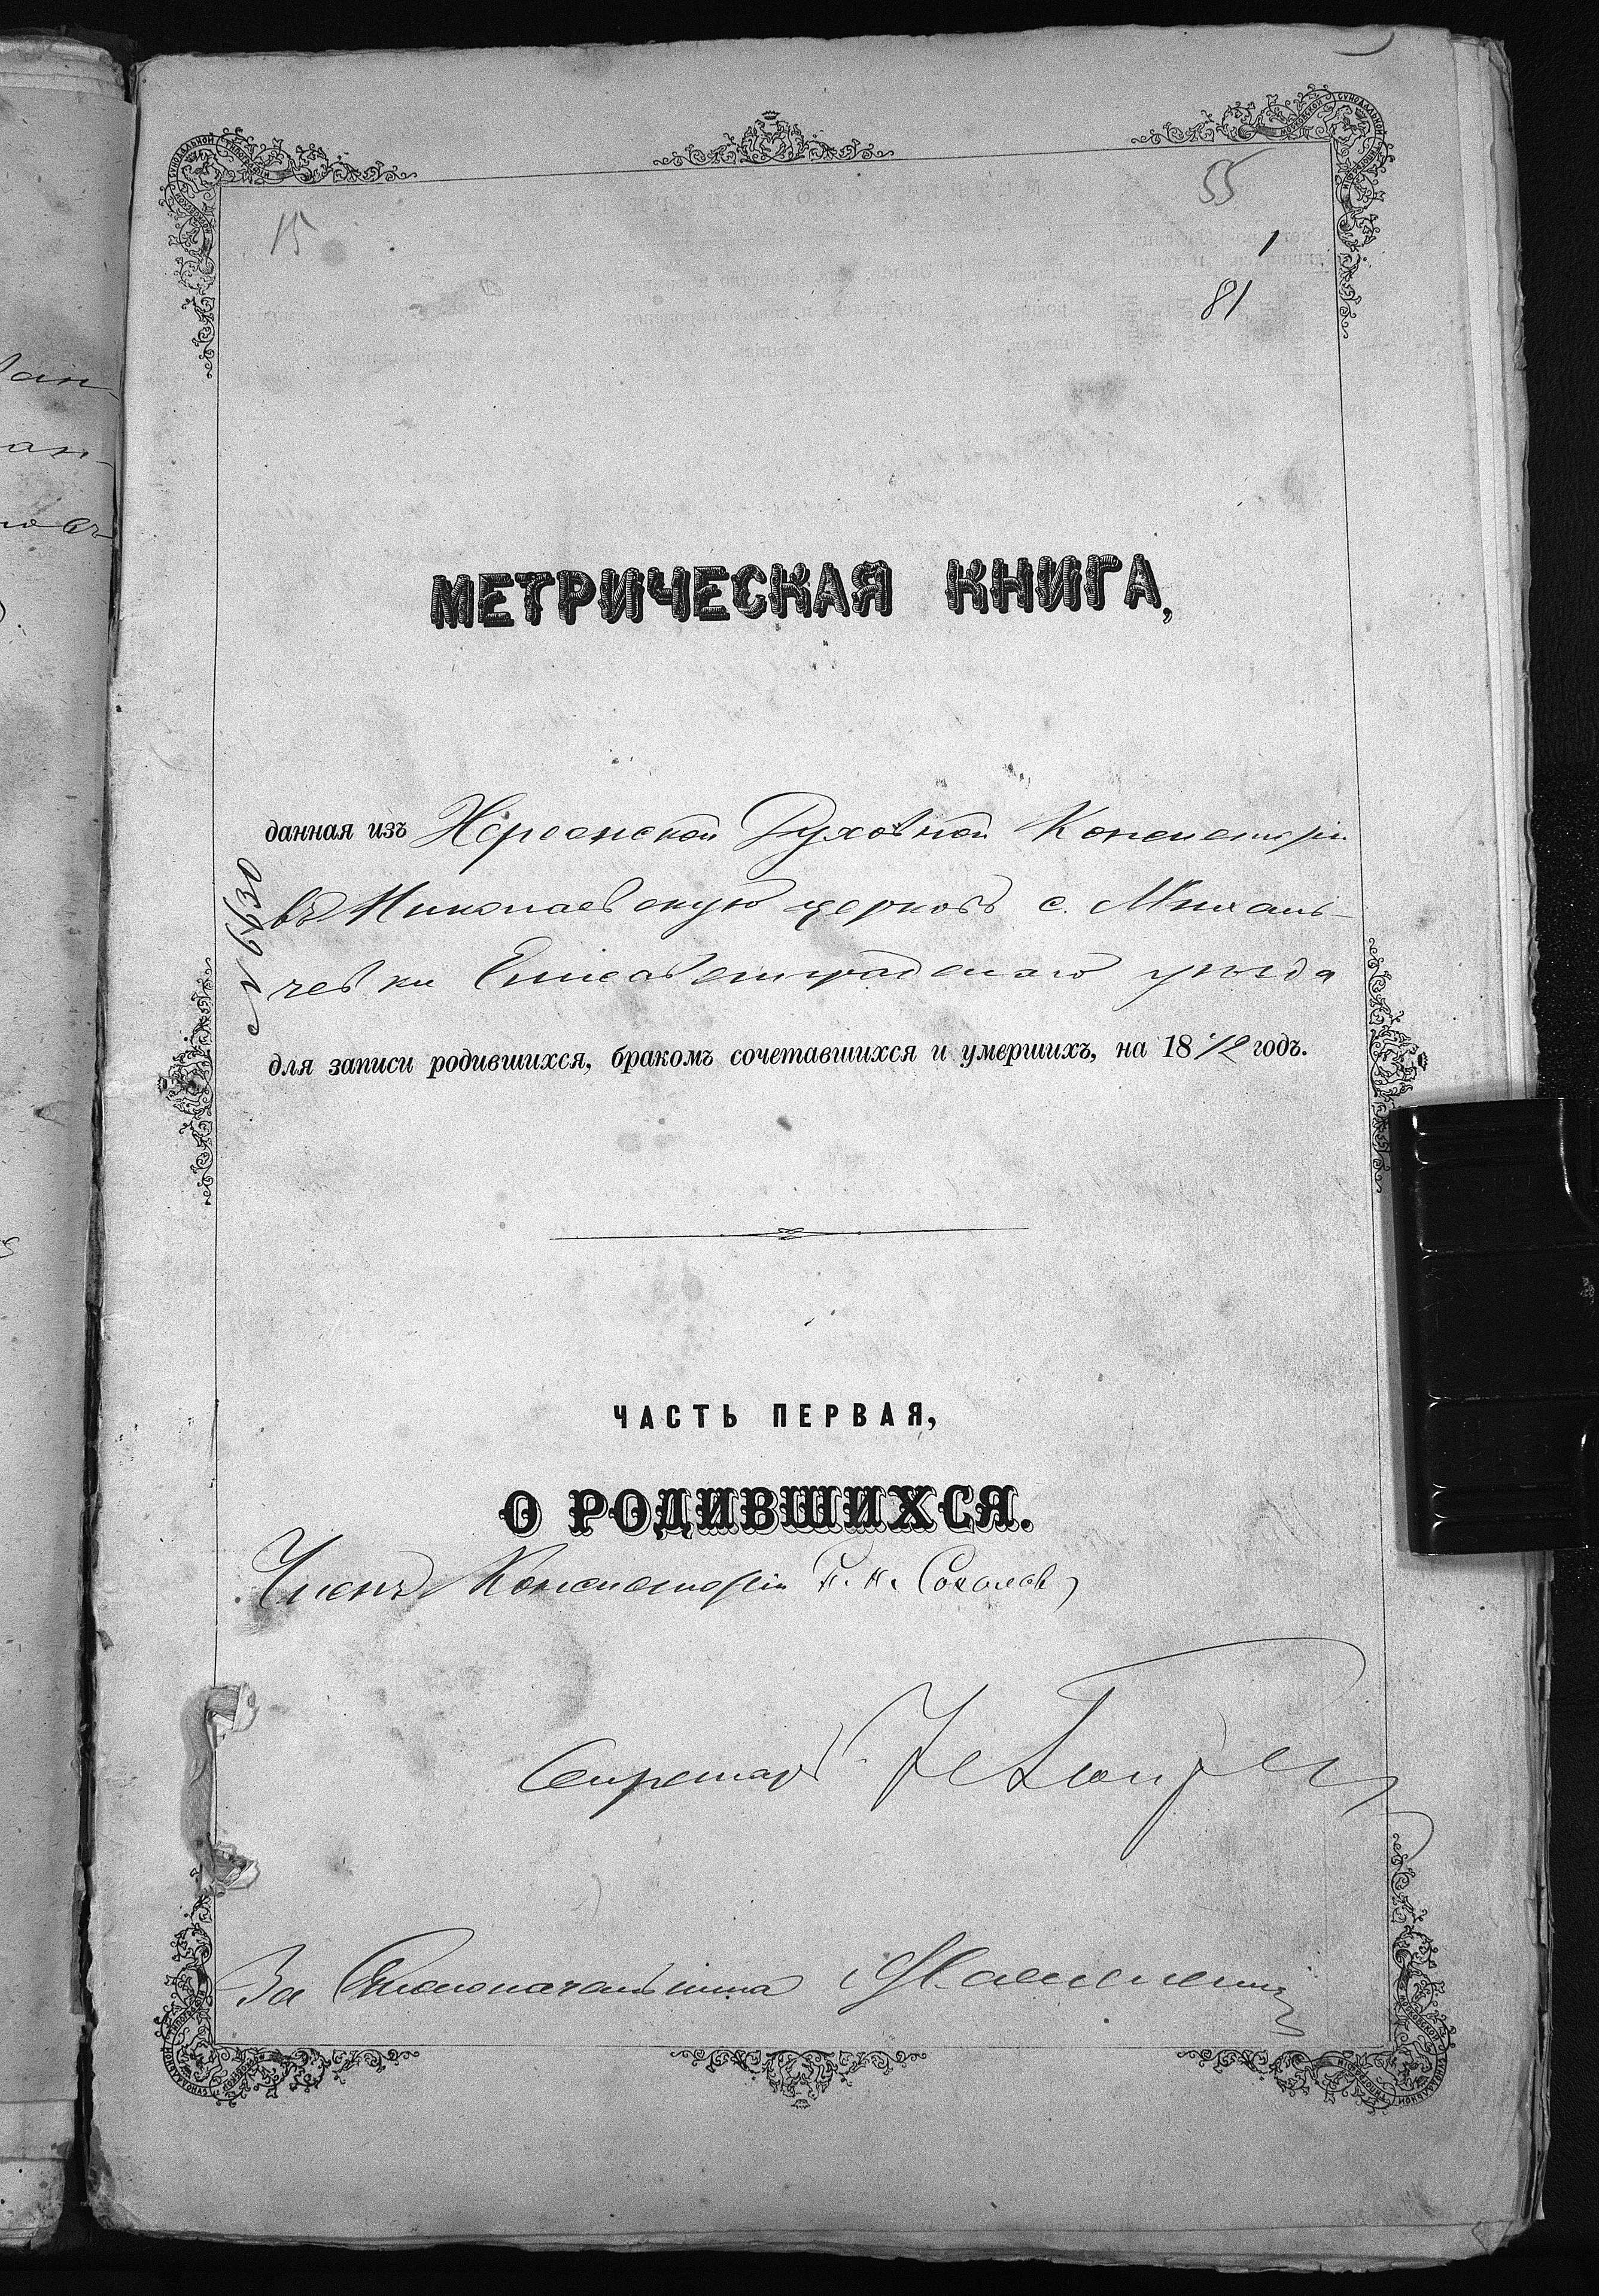 15
55
1
81
МЕТРИЧЕСКАЯ КНИГА,
данная изъ Херсонской Духовной Консисторіи
въ Николаевскую церковь с. Михаль-
чевки Елисаветградскаго уѣзда
№ 6430
для записи родившихся, бракомъ сочетавшихся и умершихъ, на 1872 годъ.
ЧАСТЬ ПЕРВАЯ,
О РОДИВШИХСЯ.
Членъ Консисторіи
Секретарь
За Столоначальника